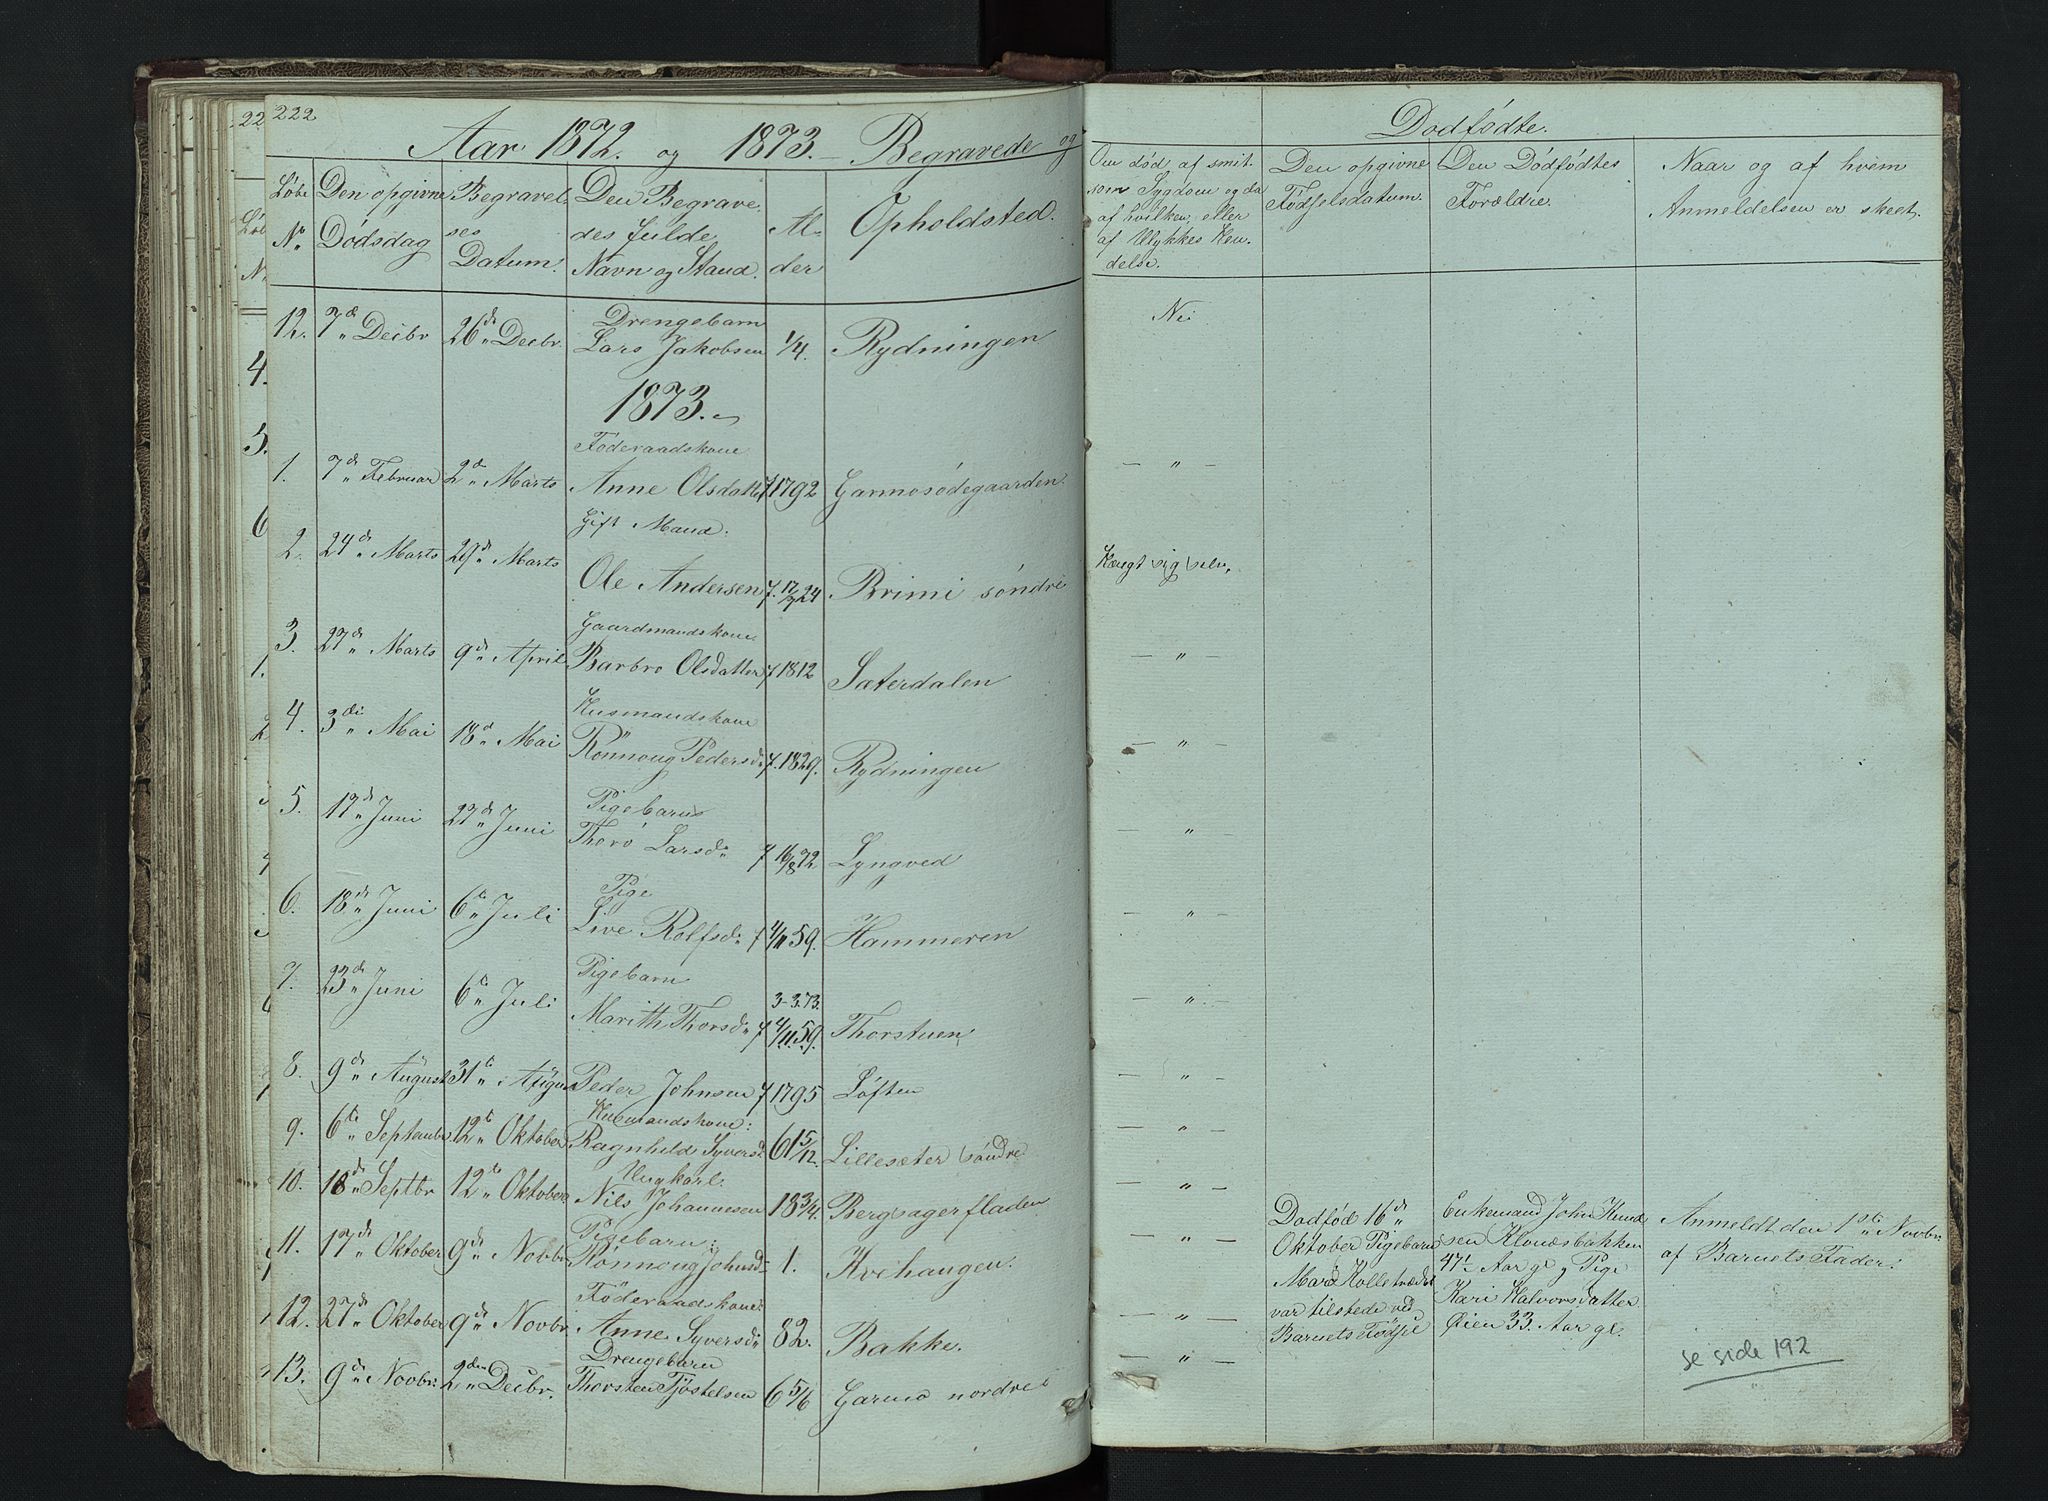 222
Aar 1872. og 1873. — Begravede og
Dödfödte.
Löbe N°
Den opgivne Dödsdag
Begravelses Datum.
Den Begravedes fulde Navn og Stand.
Alder
Opholdsted.
Om död af smitsom Sygdom og da af hvilken, eller af Ulykkes Hændelse.
Den opgivne Födselsdatum.
Den Dödfödtes Forældre.
Naar og af hvem Anmeldelsen er skeet.
12. 7de Decbr 26de Decbr. Drengebarn
Lars Jakobsen 1/4. Rydningen Nei
1873.
Föderaadskone
1. 7de Februar 2de Marts Anne Olsdatter f 1792 Garmosödegaarden. — " —
Gift Mand.
2. 24de Marts 29de Marts
Ole Andersen f. 17/7 24 Brimi söndre Hængt sig selv.
Gaardmandskone
3. 27de Marts 9de April Barbro Olsdatter f 1812 Sæterdalen — " —
Husmandskone
4. 3die Mai 18de Mai Rönnoug Pedersd: f. 1829. Rydningen — " —
Pigebarn
5. 17de Juni 22de Juni Thorö Larsd: f 16/8 72 Lyngved — " —
Pige
6. 18de Juni 6te Juli Live Rolfsd: f 4/11 59. Hammeren — " —
Pigebarn
7. 23de Juni 6te Juli 3-3.73.
Marith Thorsd: f 4/11 59. Thorstuen — " —
8. 9de August 31te August Peder Johnsen f 1795 Löften — " —
Husmandskone:
9. 6te Septembr 12te Oktober Ragnhild Syversd 61 5/12. Lillesæter söndre — " —
Ungkarl.
10. 18de Septbr 12te Oktober Nils Johannesen 18 3/4. Bergsagerfladen — " —
Pigebarn:
11. 17de Oktober 9de Novbr Rönnoug Johnsd: 1. Kvihaugen. — " —
Föderaadskone:
12. 27de Oktober 9de Novbr. Anne Syversd: 82. Bakke. — " —
Drengebarn
13. 9de Novbr: 2den Decbr. Thorsten Tjöstelsen 6 5/6 Garmo nordre — " —
Dödföd 16de
Oktober Pigebarn
Kolletrædet
var tilstede ved
Barnets Födsel
Enkemand John Knud
sen Klonæsbakken
47½ Aar gl og Pige
Kari Halvorsdatter
Öien 33 Aar gl.
Anmeldt den 1ste Novbr
af Barnets Fader.
se side 192